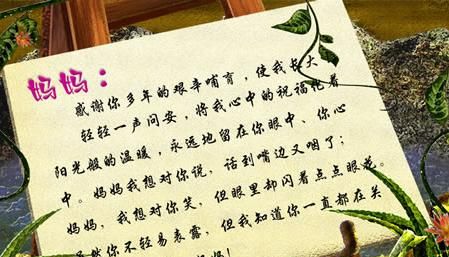 妈妈：
感谢你多年的艰辛哺育，使我长大
轻轻一声问安，将我心中的祝福托着
阳光般的温暖，永远地留在你眼中、你心
中。妈妈我想对你说，话到嘴边又咽了；
妈妈，我想对你笑，但眼里却闪着点点眼花。
虽然你不轻易表露，但我知道你一直都在关